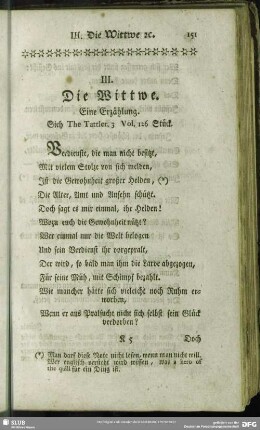 III. Die Wittwe ꝛc. 151
III.
Die Wittwe.
Eine Erzählung.
Sieh The Tattler, 3 Vol. 126 Stück.
Verdienste, die man nicht besitzt,
Mit vielem Stolze von sich melden,
Ist die Gewohnheit großer Helden, (*)
Die Alter, Amt und Ansehn schützt.
Doch sagt es mir einmal, ihr Helden!
Wozu euch die Gewohnheit nützt?
Wer einmal nur die Welt belogen
Und sein Verdienst ihr vorgeprahlt,
Der wird, so bald man ihm die Larve abgezogen,
Für seine Müh, mit Schimpf bezahlt.
Wie mancher hätte sich vieleicht noch Ruhm er-
worben,
Wenn er aus Pralsucht nicht sich selbst sein Glück
verdorben?
K 5 Doch
(*) Man darf diese Note nicht lesen, wenn man nicht will.
Wer englisch versteht wird wissen, was a hero of
the quill für ein Ding ist.
SLUB
gefördert von der
DFG